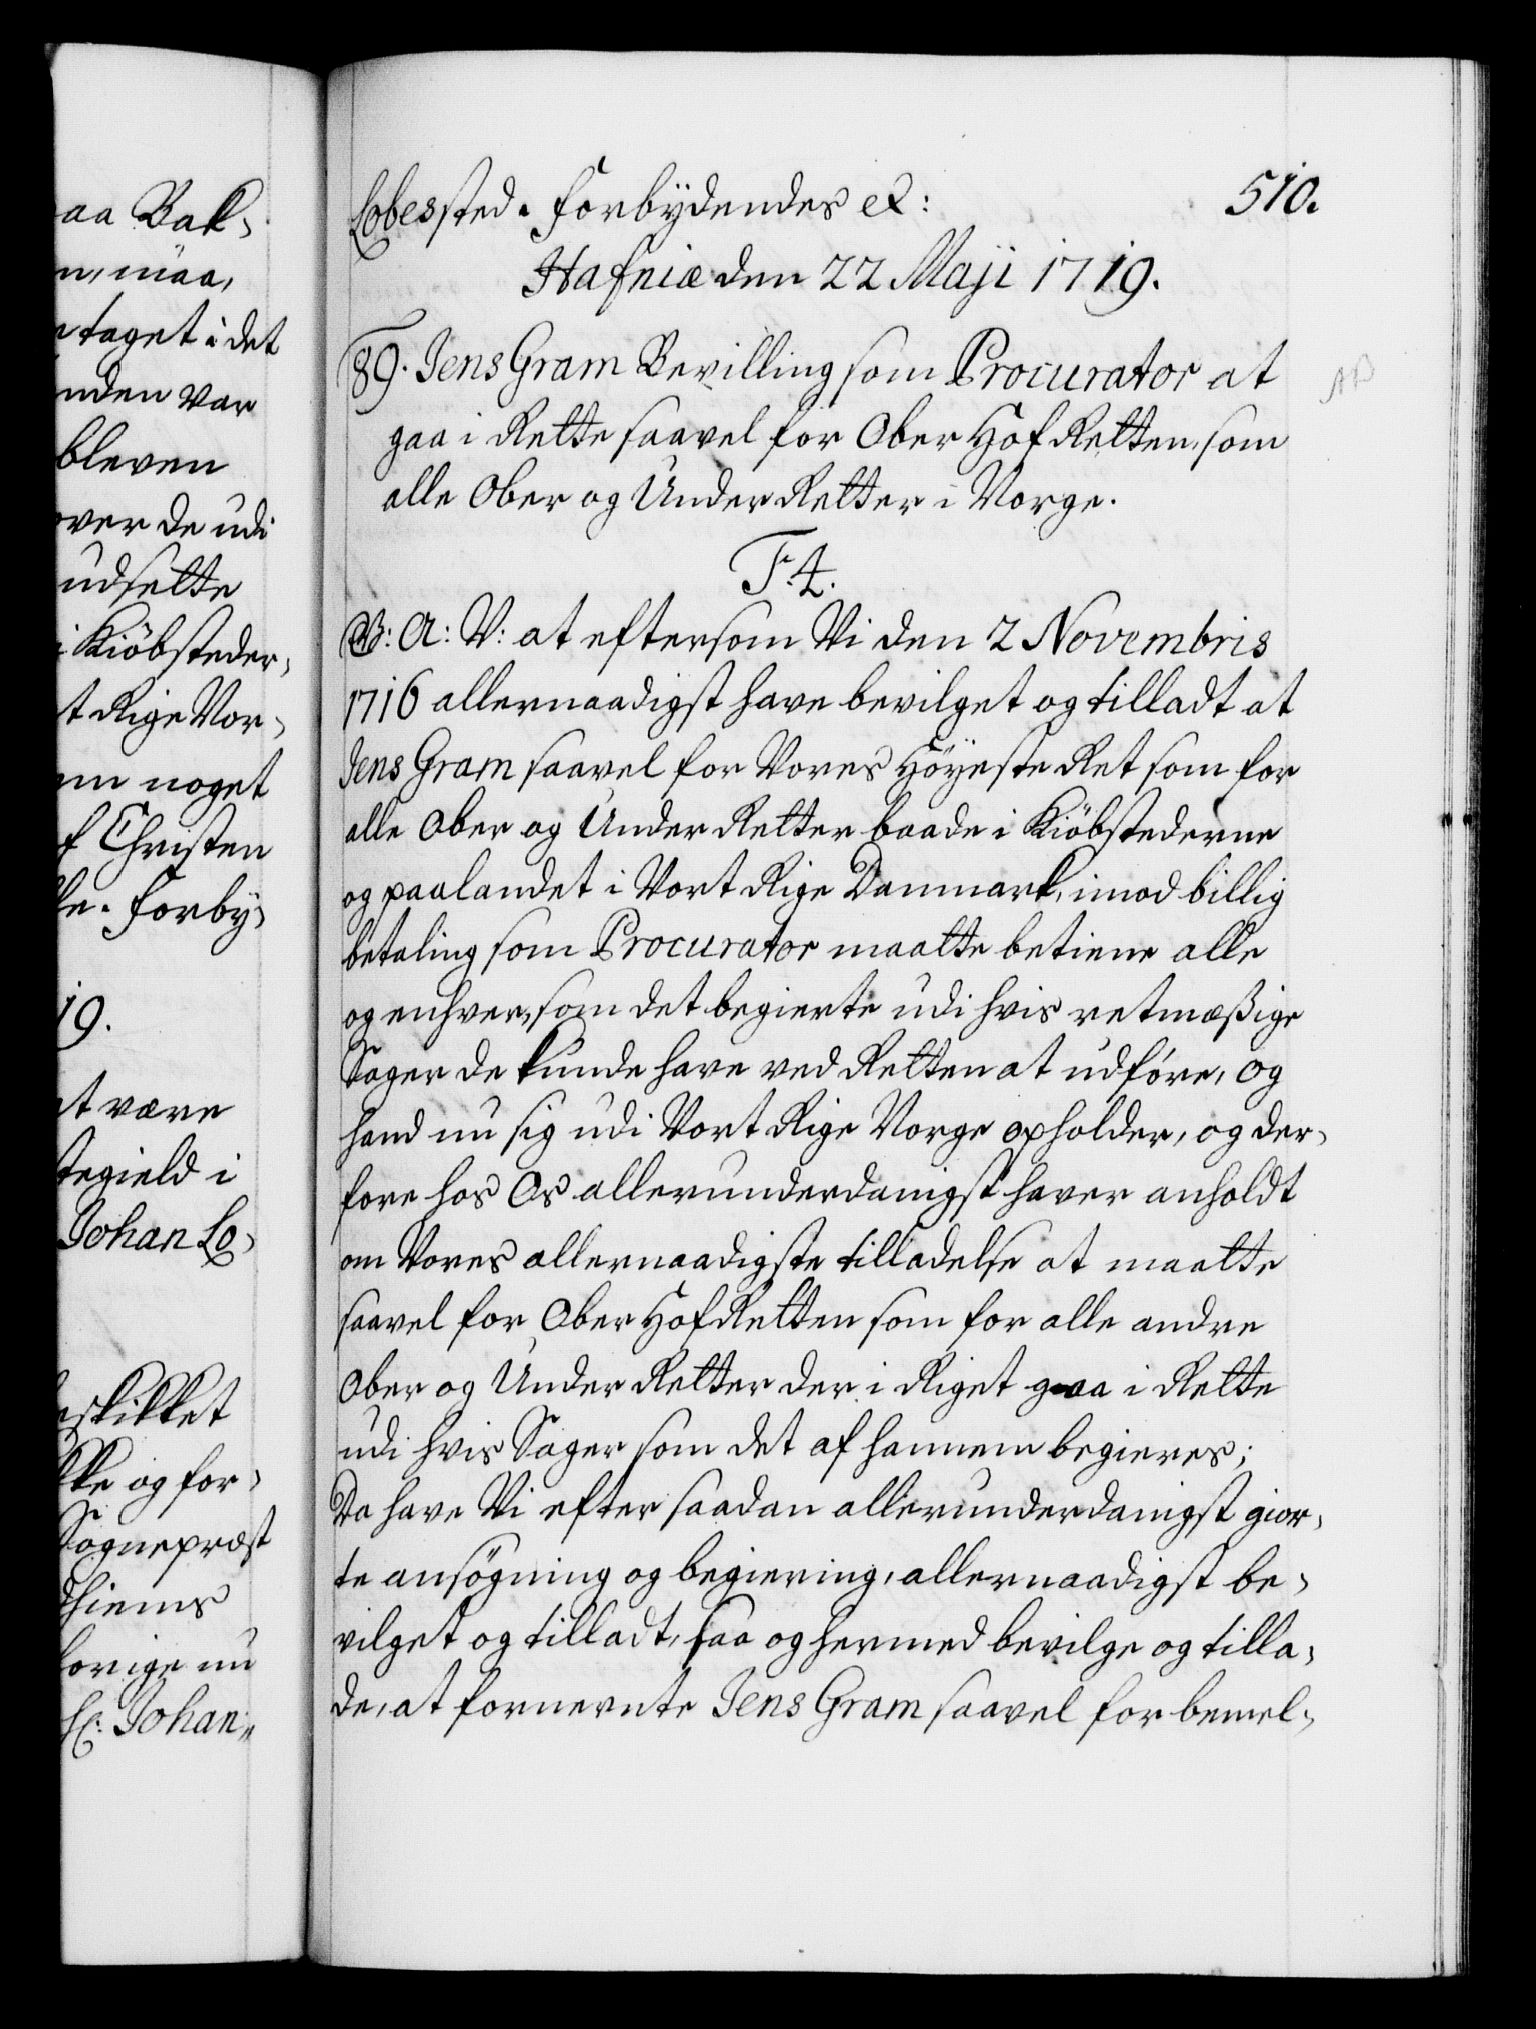 aa Bak-
n, maa,
taget i det
nden var
bleven
over de udi
udsette
i Kiöbsteder,
t Rige Nor-
em noget
f Christen
le. Forby-
19.
t være
tegield i
Johan Lo-
skikket
kke og for-
Sogneprest
dhiems
forige nu
Sl: Johan„
510.
Lobessted. Forbydendes etc:
Hafniæ den 22 Maji 1719.
89. Jens Gram Bevilling som Procurator at
gaa i Rette saavel for Ober Hof Retten, som
alle Ober og Under Retter i Norge.
F. 4.
G: A: V: at eftersom Vi den 2 Novembris
1716 allernaadigst have bevilget og tilladt at
Jens Gram saavel for Vores Höyeste Ret som for
alle Ober og Under Retter baade i Kiöbstederne
og paa landet i Vort Rige Danmark, imod billig
betaling som Procurator maatte betiene alle
og enhver, som det begierte udi hvis retmæßige
Sager de kunde have ved Retten at udføre, og
hand nu sig udi Vort Rige Norge opholder, og der-
fore hos Os allerunderdanigst haver anholdt
om Vores allernaadigste tilladelse at maatte
saavel for Ober Hof Retten som for alle andre
Ober og Under Retter der i Riget gaa i Rette
udi hvis Sager som det af hannem begieres;
Da have Vi efter saadan allerunderdanigst gior-
te ansögning og begiering, allernaadigst be-
vilget og tilladt, saa og hermed bevilge og tilla-
de, at fornevnte Jens Gram saavel for bemel-